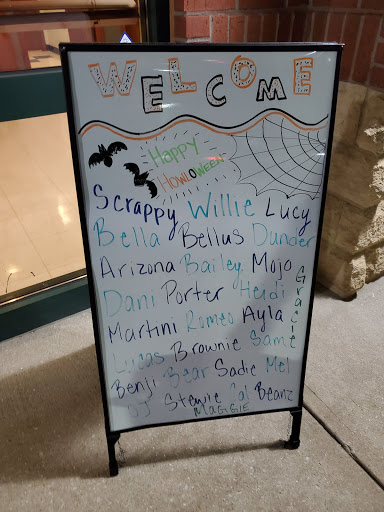 WELCOME
Happy
HOWLOWEEN
Scrappy Willie Lucy
Bella Bellus Dunder
Arizona Bailey Mojo
Dani Porter Heidi
Gracie
Martini Romeo Ayla
Lucas Brownie Same
Benji Bear Sadie Mel
OJ Stewie Cal Beanz
MAGGIE